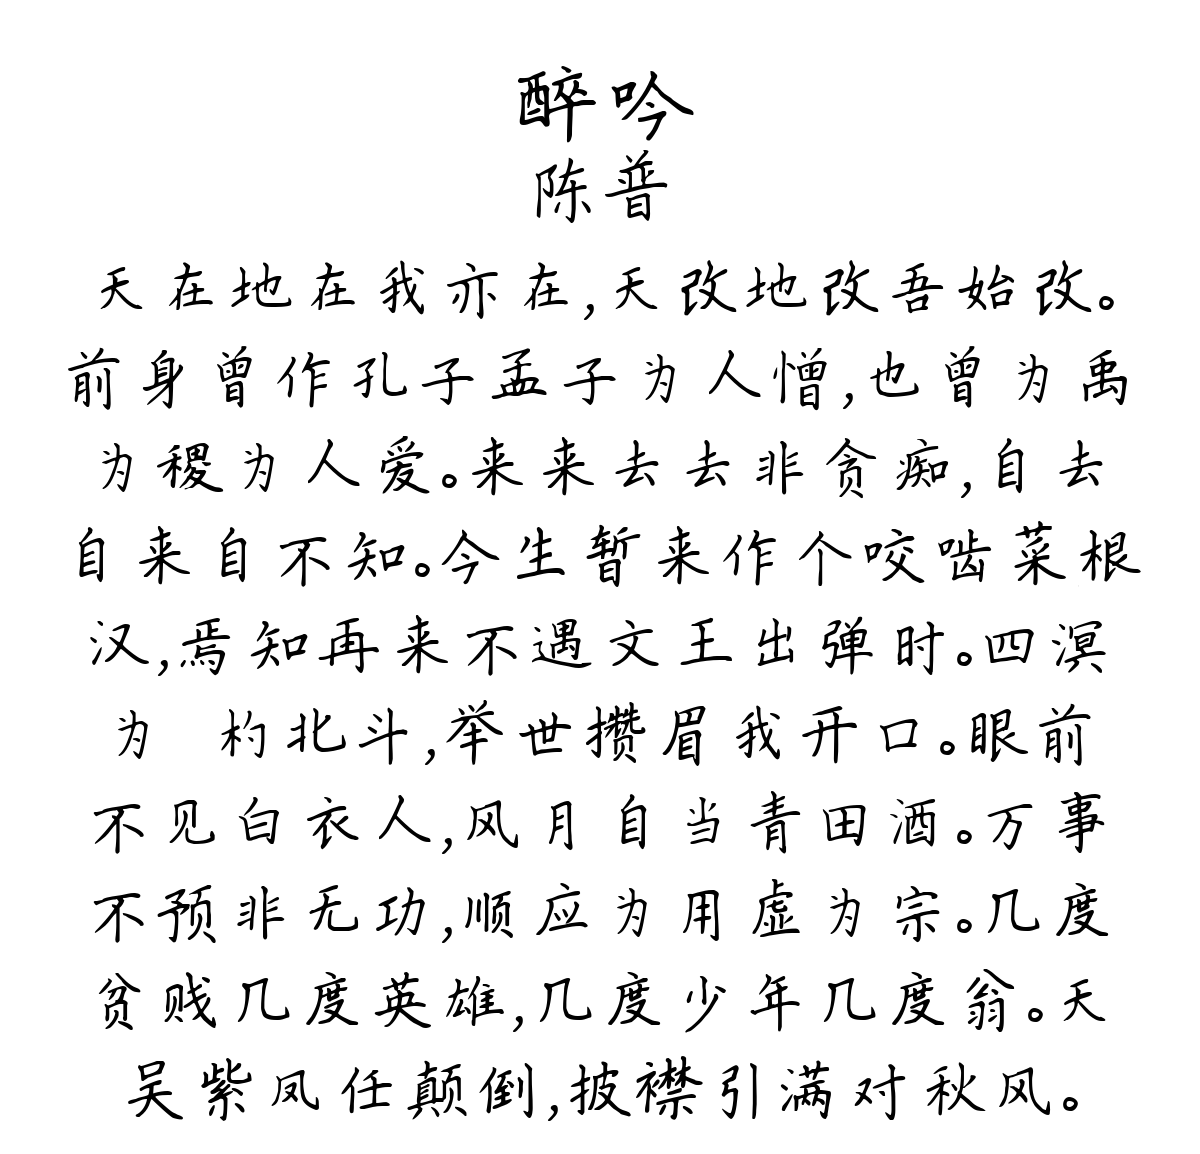 醉吟
陈普
天在地在我亦在,天改地改吾始改。
前身曾作孔子孟子为人憎,也曾为禹
为稷为人爱。来来去去非贪痴,自去
自来自不知。今生暂来作个咬啮菜根
汉,焉知再来不遇文王出弹时。四溟
为 杓北斗,举世攒眉我开口。眼前
不见白衣人,风月自当青田酒。万事
不预非无功,顺应为用虚为宗。几度
贫贱几度英雄,几度少年几度翁。天
吴紫凤任颠倒,披襟引满对秋风。